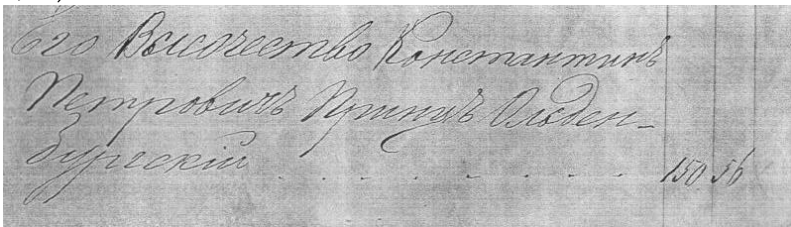 Его Высочество Константинъ
Петровичъ Принцъ Ольден-
бургскій . . . . . . . . . 150 56